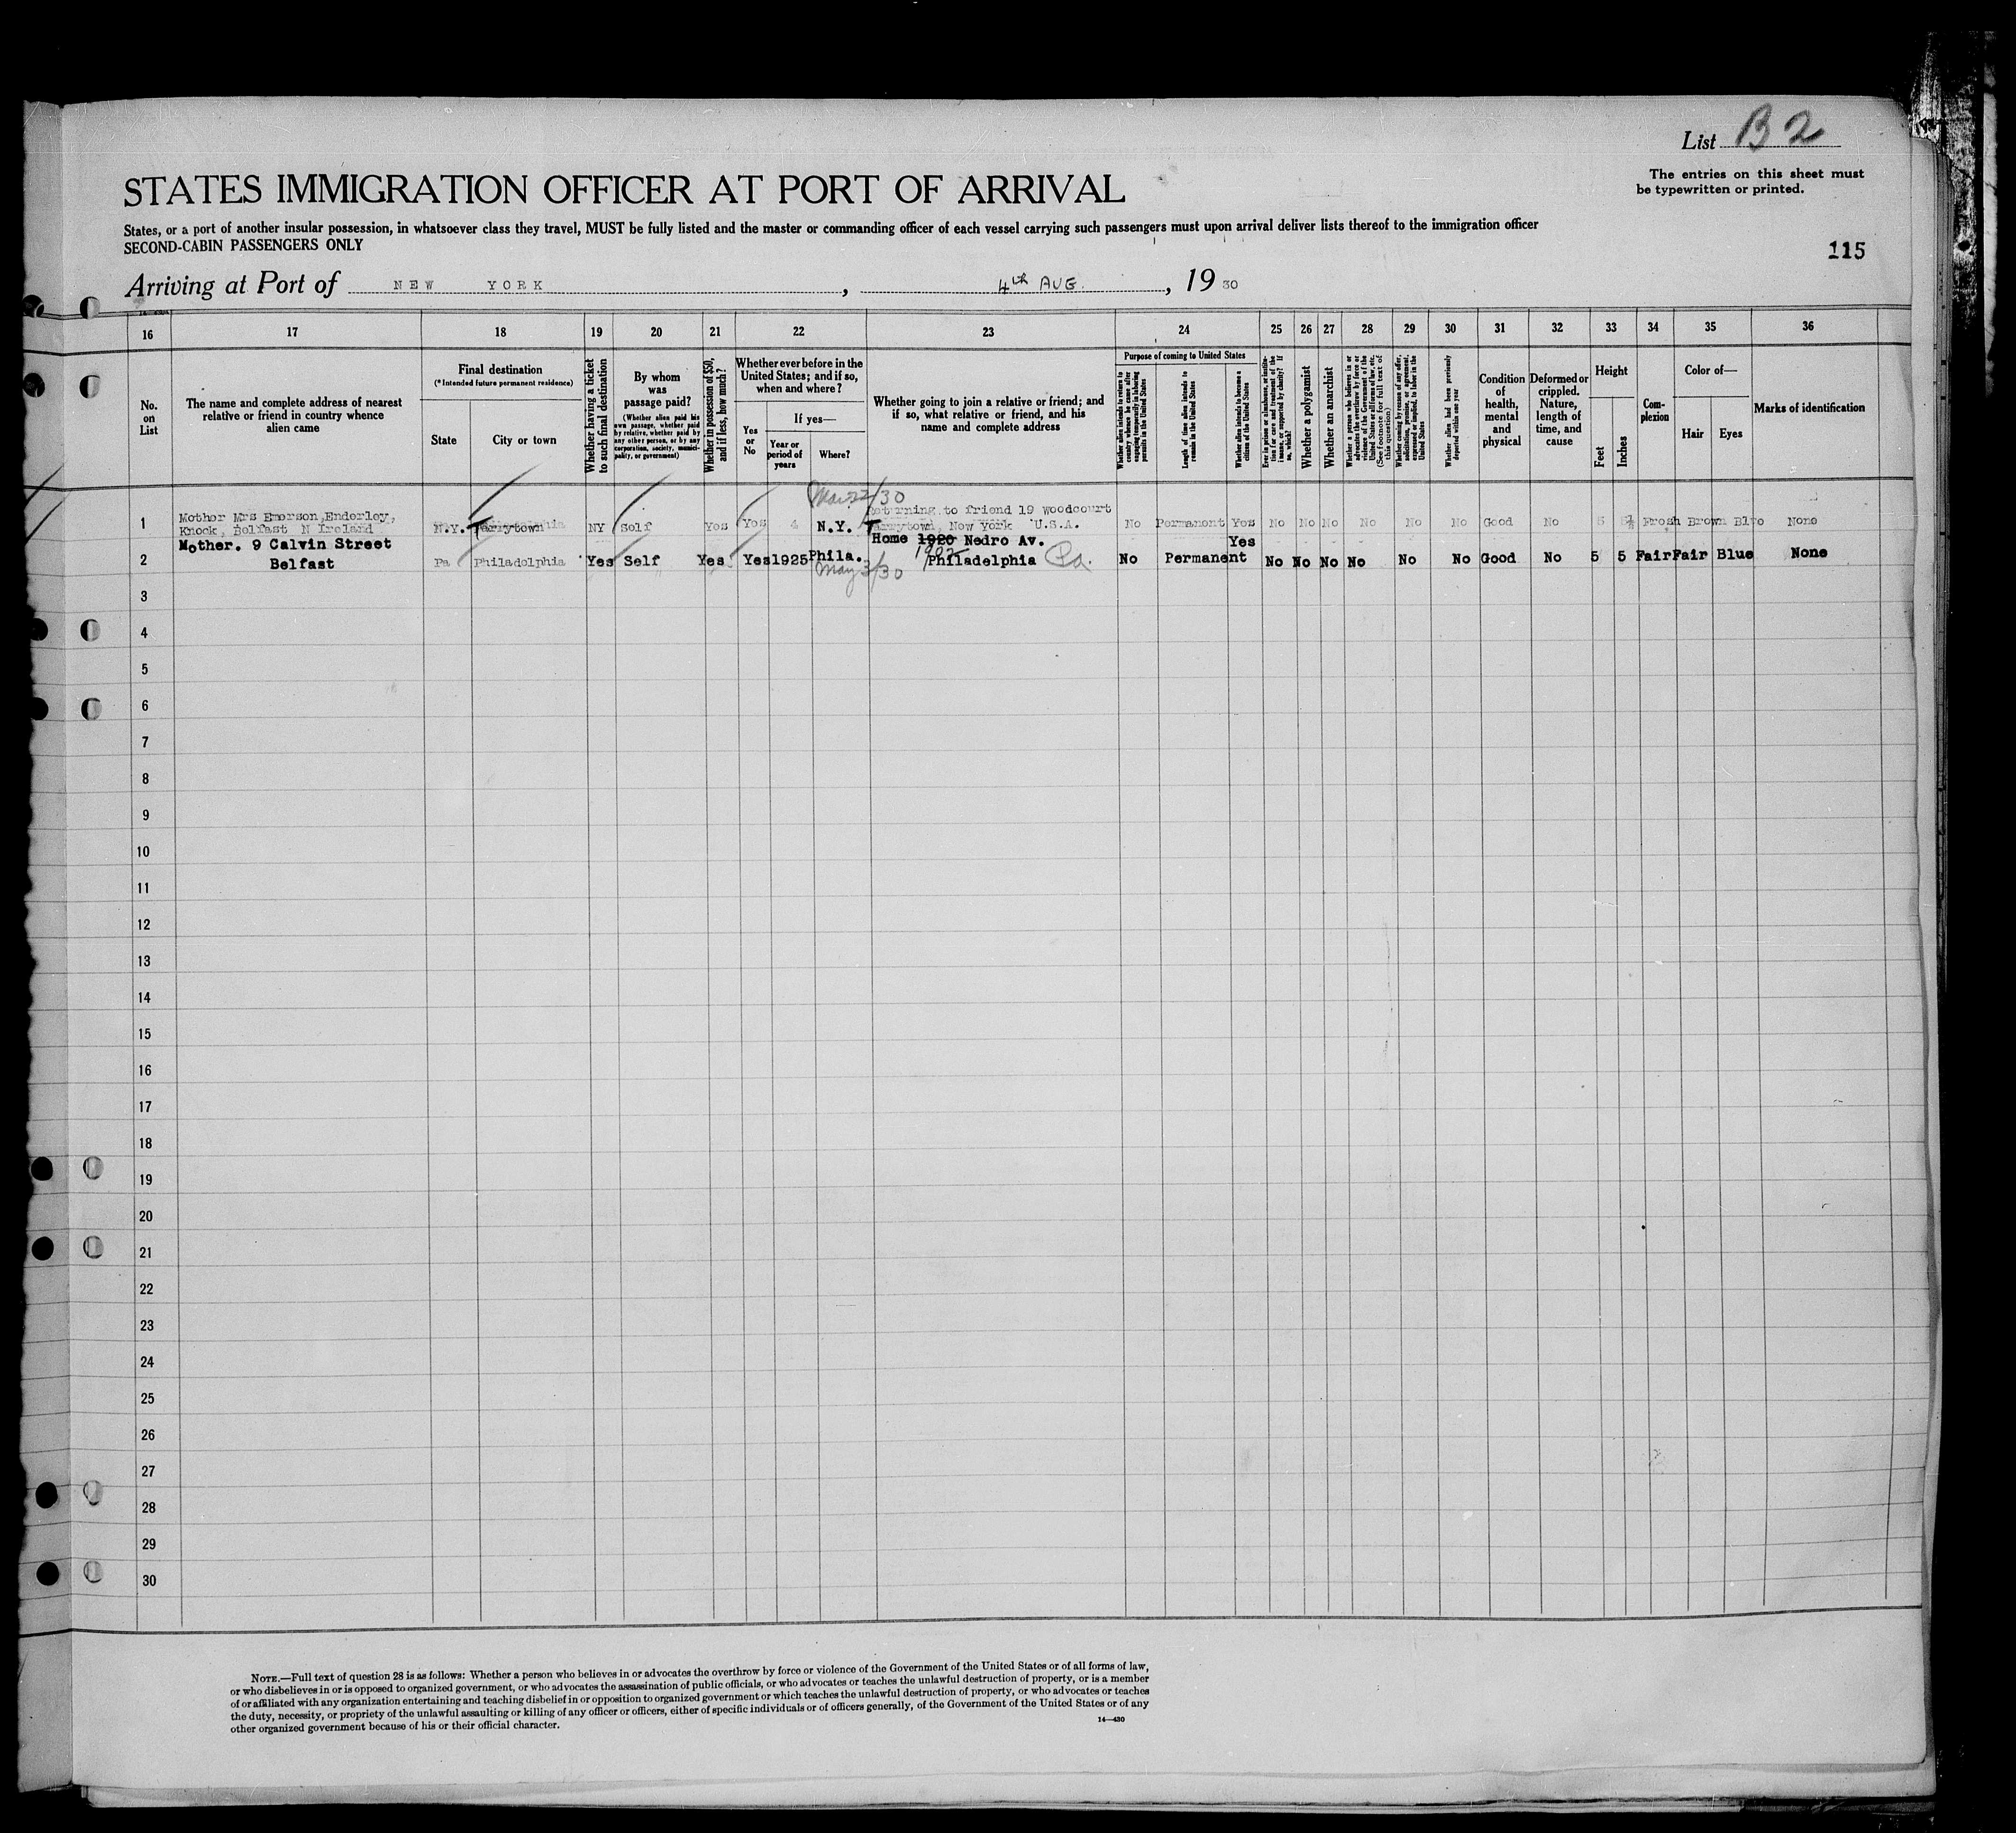 List B 2
The entries on this sheet must
be typewritten or printed.
STATES IMMIGRATION OFFICER AT PORT OF ARRIVAL
States, or a port of another insular possession, in whatsoever class they travel, MUST be fully listed and the master or commanding officer of each vessel carrying such passengers must upon arrival deliver lists thereof to the immigration officer
SECOND-CABIN PASSENGERS ONLY
115
Arriving at Port of NEW YORK, 4th AUG., 19 30
16 17 18 19 20 21 22 23 24 25 26 27 28 29 30 31 32 33 34 35 36
No. on List
The name and complete address of nearest
relative or friend in country whence
alien came
Final destination
(* Intended future permanent residence)
State
City or town
Whether having a ticket
to such final destination
By whom
was
passage paid?
(Whether alien paid his
own passage, whether paid
by relative, whether paid by
any other person, or by any
corporation, society, munici-
pality, or government)
Whether in possession of $50,
and if less, how much?
Whether ever before in the
United States; and if so,
when and where?
If yes—
Yes
or
No
Year or
period of
years
Where?
Whether going to join a relative or friend; and
if so, what relative or friend, and his
name and complete address
Purpose of coming to United States
Whether alien intends to return to
country whence he came after
engaging temporarily in laboring
pursuits in the United States
Length of time alien intends to
remain in the United States
Whether alien intends to become a
citizen of the United States
Ever in prison or almshouse, or institu-
tion for care and treatment of the
insane, or supported by charity? If
so, which?
Whether a polygamist
Whether an anarchist
Whether a person who believes in or
advocates the overthrow by force or
violence of the Government of the
United States or all forms of law, etc.
(See footnote for full text of
this question)
Whether coming by reason of any offer,
solicitation, promise, or agreement,
expressed or implied, to labor in the
United States
Whether alien had been previously
deported within one year
Condition
of
health,
mental
and
physical
Deformed or
crippled.
Nature,
length of
time, and
cause
Height
Feet
Inches
Com-
plexion
Color of—
Hair
Eyes
Marks of identification
Mar 22/30
1 Mother Mrs Emerson,Enderley,
Knock, Belfast N Ireland
N.Y. Tarrytown NY Self Yes Yes 4 N.Y.
Returning to friend 19 Woodcourt
Tarrytown, New York U.S.A.
No Permanent Yes No No No No No No Good No 5 5½ Fresh Brown Blue None
2 Mother. 9 Calvin Street
Belfast
Pa Philadelphia Yes Self Yes Yes 1925 Phila.
May 3/30
Home 1920 Nedro Av.
1902
Philadelphia Pa.
No Permanent Yes No No No No No No Good No 5 5 Fair Fair Blue None
3
4
5
6
7
8
9
10
11
12
13
14
15
16
17
18
19
20
21
22
23
24
25
26
27
28
29
30
NOTE.—Full text of question 28 is as follows: Whether a person who believes in or advocates the overthrow by force or violence of the Government of the United States or of all forms of law,
or who disbelieves in or is opposed to organized government, or who advocates the assassination of public officials, or who advocates or teaches the unlawful destruction of property, or is a member
of or affiliated with any organization entertaining and teaching disbelief in or opposition to organized government or which teaches the unlawful destruction of property, or who advocates or teaches
the duty, necessity, or propriety of the unlawful assaulting or killing of any officer or officers, either of specific individuals or of officers generally, of the Government of the United States or of any
other organized government because of his or their official character.
14—430